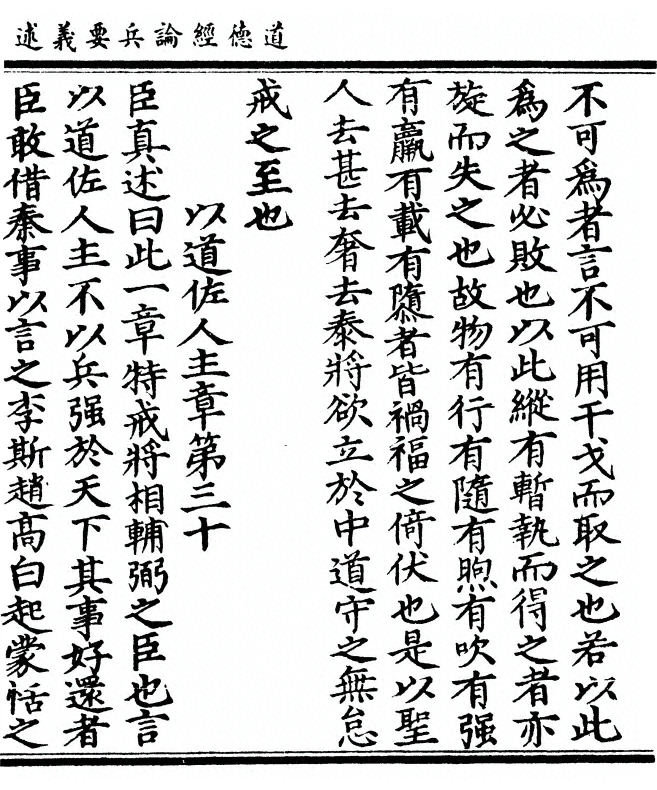 道德經論兵要義述
不可爲者言不可用干戈而取之也若以此
爲之者必敗也以此縱有暫執而得之者亦
旋而失之也故物有行有隨有煦有吹有强
有羸有載有隳者皆禍福之倚伏也是以聖
人去甚去奢去泰將欲立於中道守之無怠
戒之至也
以道佐人主章第三十
臣真述曰此一章特戒將相輔弼之臣也言
以道佐人主不以兵强於天下其事好還者
臣敢借秦事以言之李斯趙高白起蒙恬之